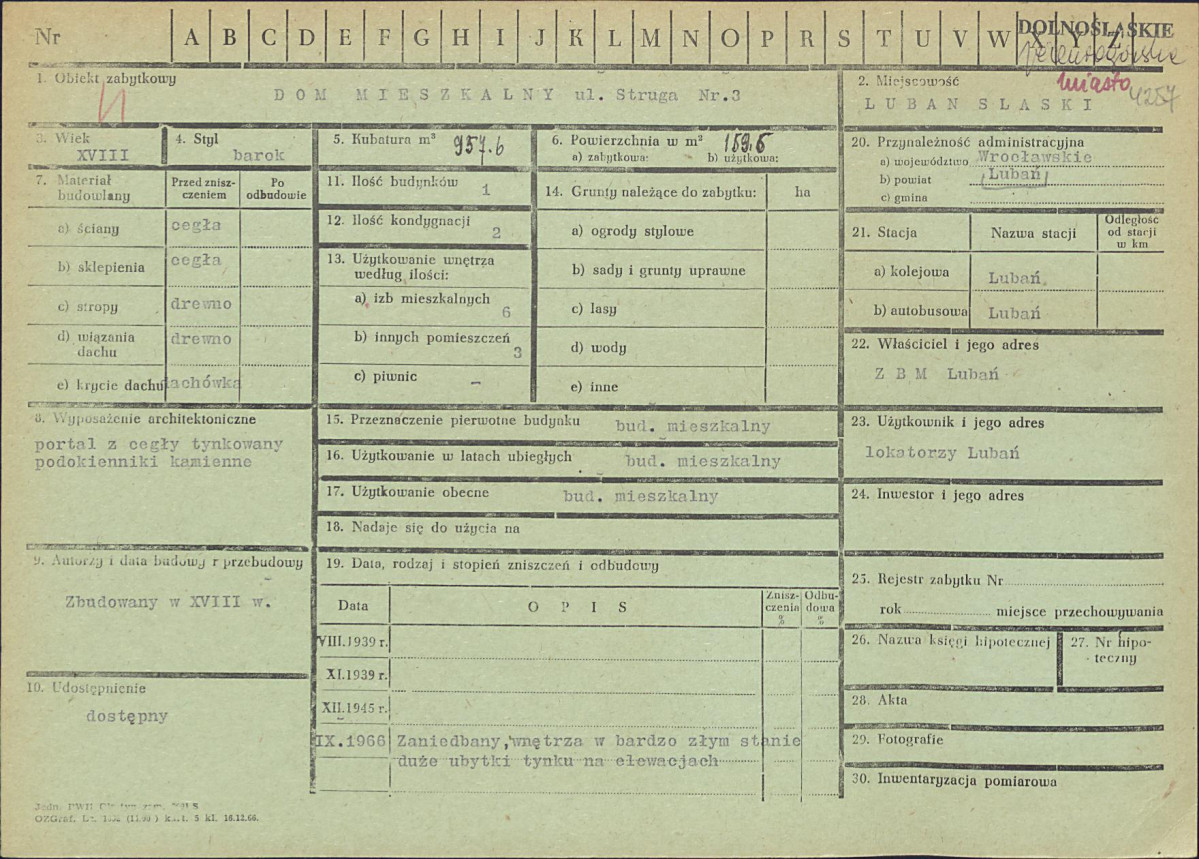 Nr A B C D E F G H I J K L M N O P R S T U V W X Y Z
DOLNOŚLĄSKIE
Jeleniogórskie
1. Obiekt zabytkowy
DOM MIESZKALNY ul. Struga Nr.3
2. Miejscowość
miasto 4257
LUBAN SLASKI
3. Wiek
XVIII
4. Styl
barok
5. Kubatura m³ 957.6
6. Powierzchnia w m² 159.6
a) zabytkowa: b) użytkowa:
7. Materiał budowlany
Przed zniszczeniem
Po odbudowie
a) ściany cegła
b) sklepienia cegła
c) stropy drewno
d) wiązania dachu drewno
e) krycie dachu dachówka
8. Wyposażenie architektoniczne
portal z cegły tynkowany
podokienniki kamienne
9. Autorzy i data budowy r przebudowy
Zbudowany w XVIII w.
10. Udostępnienie
dostępny
11. Ilość budynków 1
12. Ilość kondygnacji 2
13. Użytkowanie wnętrza
według ilości:
a) izb mieszkalnych 6
b) innych pomieszczeń 3
c) piwnic –
14. Grunty należące do zabytku: ha
a) ogrody stylowe
b) sady i grunty uprawne
c) lasy
d) wody
e) inne
15. Przeznaczenie pierwotne budynku bud. mieszkalny
16. Użytkowanie w latach ubiegłych bud. mieszkalny
17. Użytkowanie obecne bud. mieszkalny
18. Nadaje się do użycia na
19. Data, rodzaj i stopień zniszczeń i odbudowy
Data
OPIS
Zniszczenia %
Odbudowa %
VIII.1939 r.
XI.1939 r.
XII.1945 r.
IX.1966 Zaniedbany, wnętrza w bardzo złym stanie
duże ubytki tynku na elewacjach
20. Przynależność administracyjna
a) województwo Wrocławskie
b) powiat Lubań
c) gmina
21. Stacja
Nazwa stacji
Odległość od stacji w km
a) kolejowa Lubań
b) autobusowa Lubań
22. Właściciel i jego adres
Z B M Lubań
23. Użytkownik i jego adres
lokatorzy Lubań
24. Inwestor i jego adres
25. Rejestr zabytku Nr
rok miejsce przechowywania
26. Nazwa księgi hipotecznej
27. Nr hipoteczny
28. Akta
29. Fotografie
30. Inwentaryzacja pomiarowa
OZGraf. kl. 16.12.66.